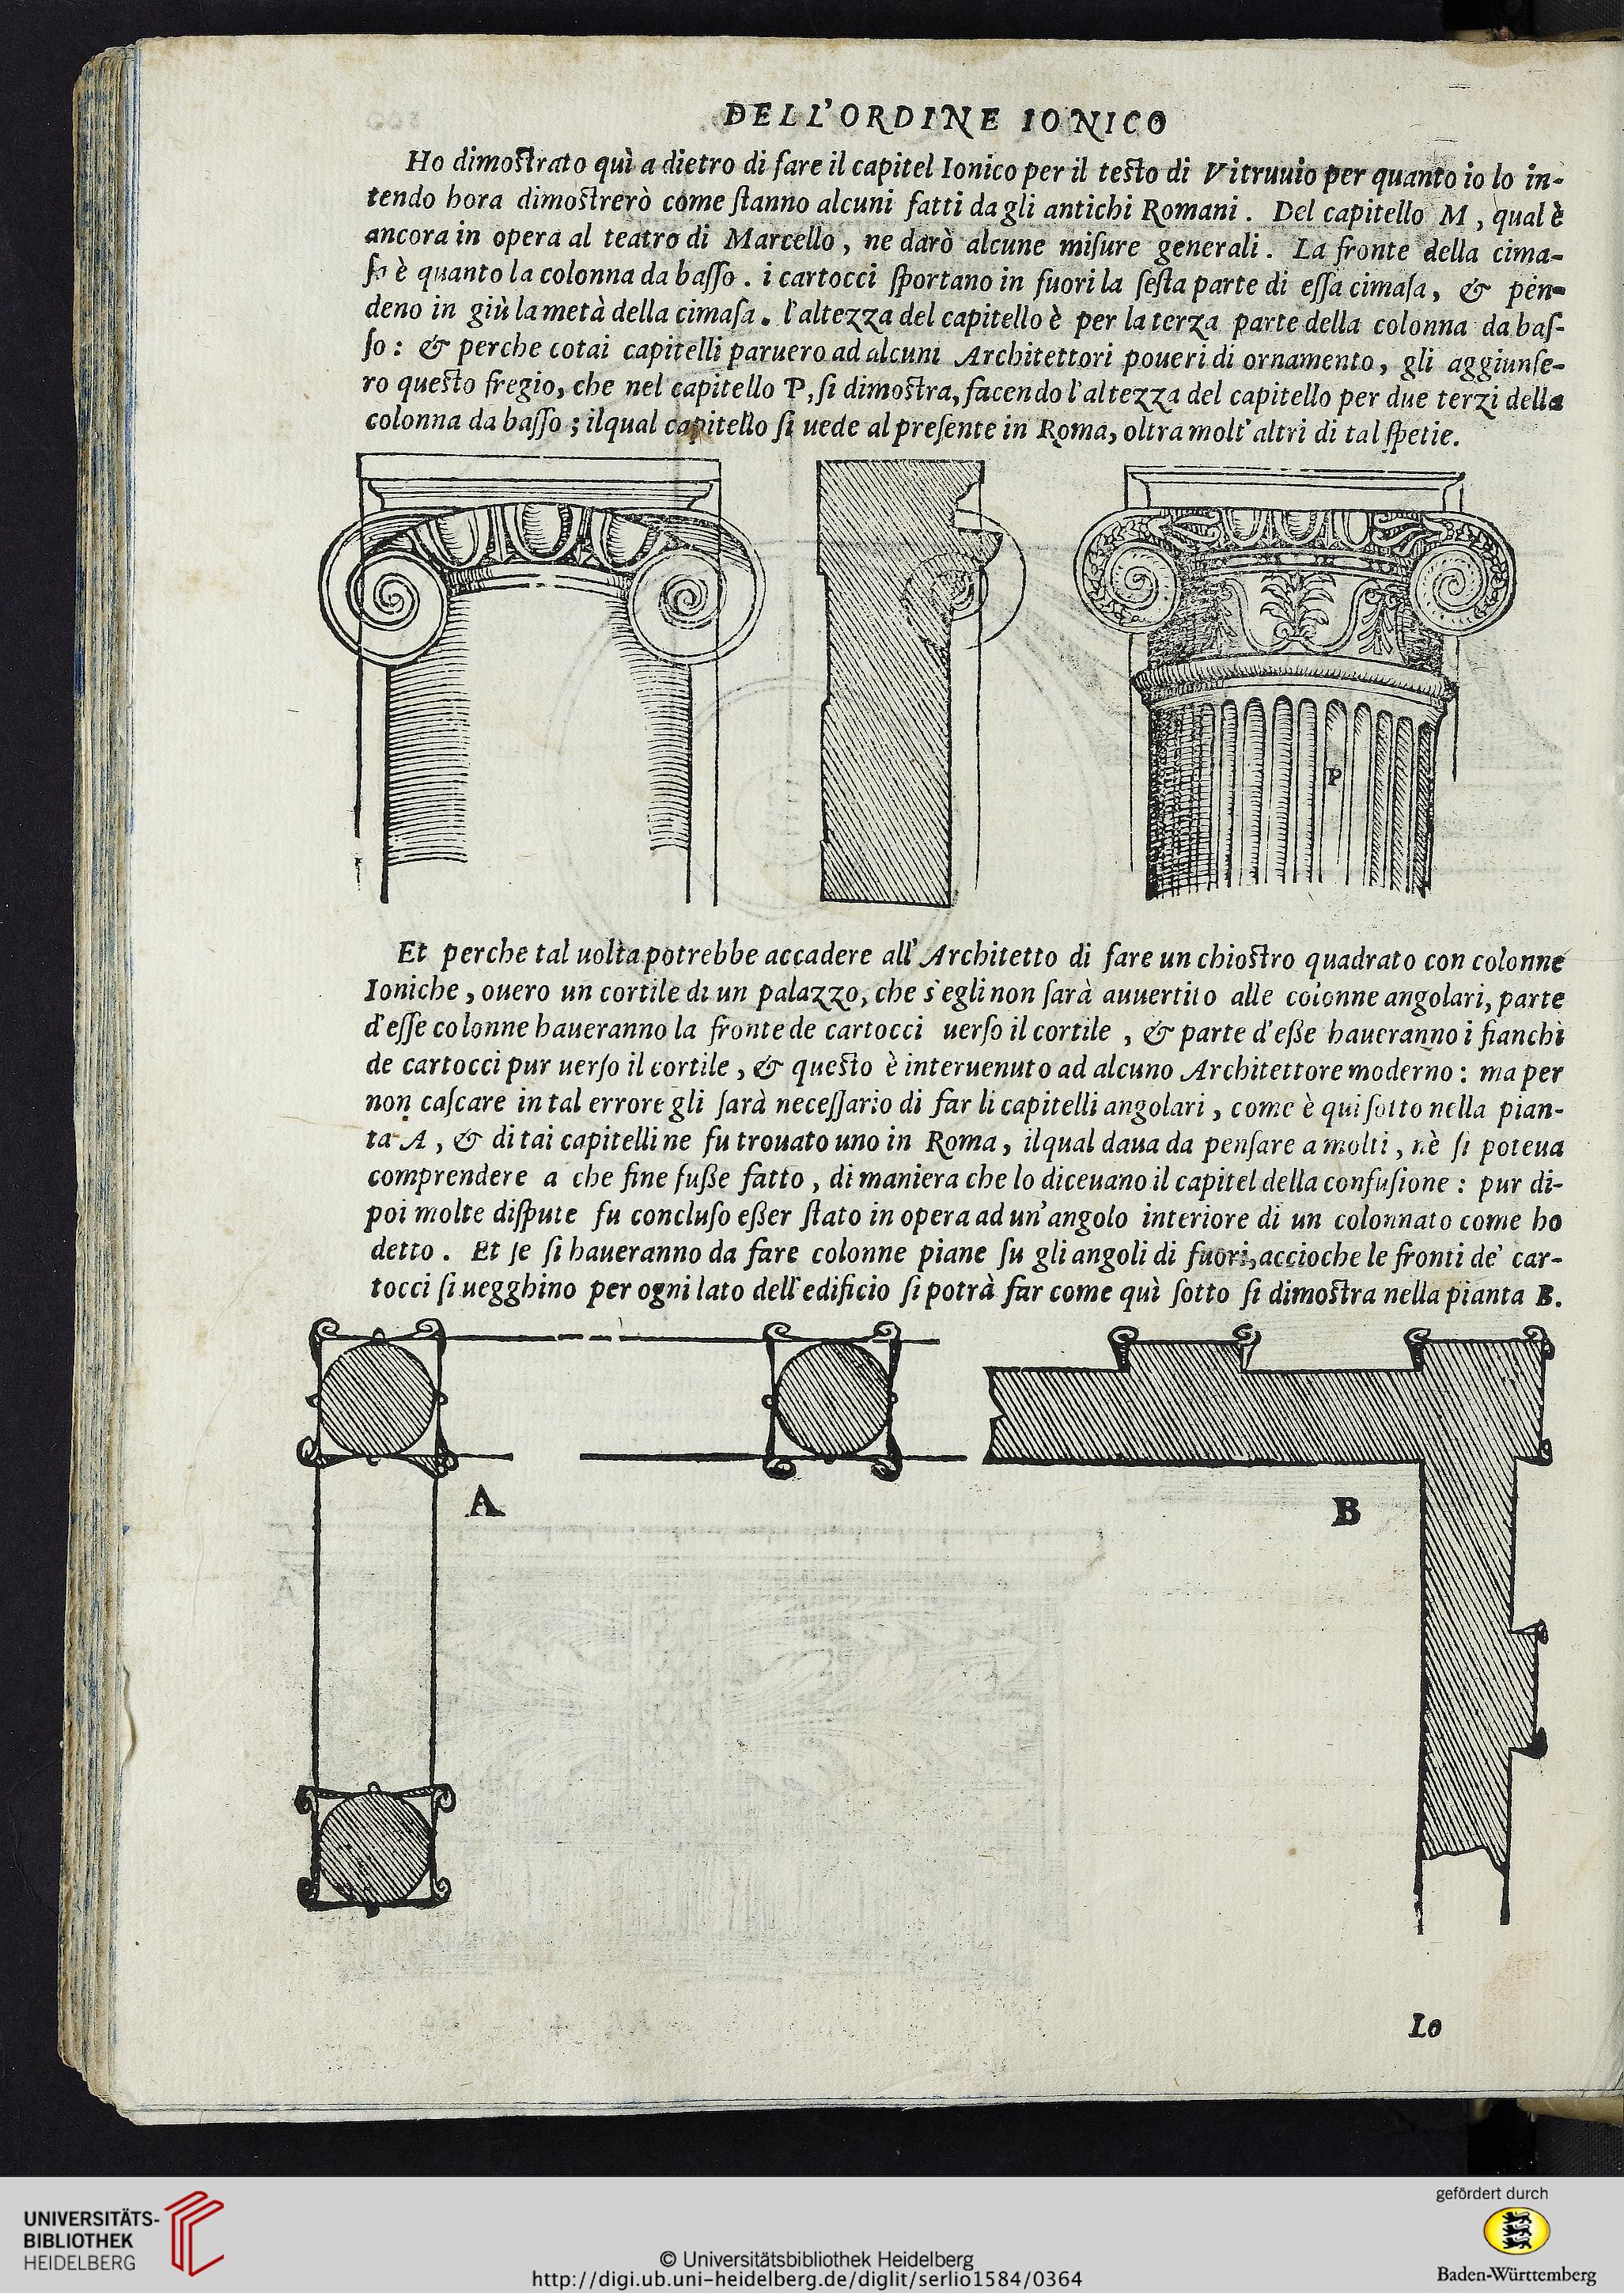 DELL'ORDINE IONICO
Ho dimoſtrato quì a dietro di fare il capitel Ionico per il teſto di Vitruuio per quanto io lo in-
tendo hora dimoſtrerò come ſtanno alcuni fatti da gli antichi Romani. Del capitello M, qual è
ancora in opera al teatro di Marcello, ne darò alcune miſure generali. La fronte della cima-
ſa è quanto la colonna da baſſo. i cartocci ſportano in fuori la ſeſta parte di eſſa cimaſa, & pen-
deno in giù la metà della cimaſa. l'altezza del capitello è per la terza parte della colonna da baſ-
ſo: & perche cotai capitelli paruero ad alcuni Architettori poueri di ornamento, gli aggiunſe-
ro queſto fregio, che nel capitello P, ſi dimoſtra, facendo l'altezza del capitello per due terzi della
colonna da baſſo; ilqual capitello ſi uede al preſente in Roma, oltra molt'altri di tal ſpetie.
P
Et perche tal uolta potrebbe accadere all'Architetto di fare un chioſtro quadrato con colonne
Ioniche, ouero un cortile di un palazzo, che s'egli non ſarà auuertito alle colonne angolari, parte
d'eſſe colonne haueranno la fronte de cartocci uerſo il cortile, & parte d'eße haueranno i fianchi
de cartocci pur uerſo il cortile, & queſto è interuenuto ad alcuno Architettore moderno: ma per
non caſcare in tal errore gli ſarà neceſſario di far li capitelli angolari, come è qui ſotto nella pian-
ta A, & di tai capitelli ne fu trouato uno in Roma, ilqual daua da penſare a molti, nè ſi poteua
comprendere a che fine fuße fatto, di maniera che lo diceuano il capitel della confuſione: pur di-
poi molte diſpute fu concluſo eßer ſtato in opera ad un'angolo interiore di un colonnato come ho
detto. Et ſe ſi haueranno da fare colonne piane ſu gli angoli di fuori, accioche le fronti de' car-
tocci ſi uegghino per ogni lato dell'edificio ſi potrà far come quì ſotto ſi dimoſtra nella pianta B.
A
B
Io
UNIVERSITÄTS-
BIBLIOTHEK
HEIDELBERG
© Universitätsbibliothek Heidelberg
http://digi.ub.uni-heidelberg.de/diglit/serlio1584/0364
gefördert durch
Baden-Württemberg